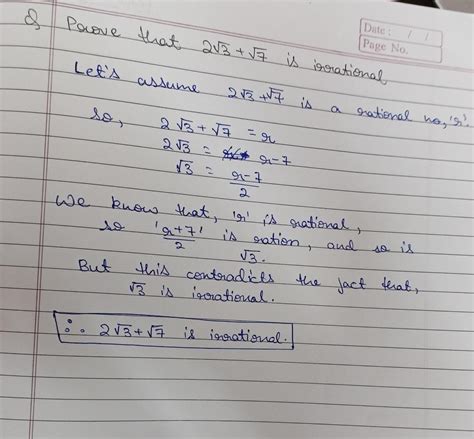 Date : / /
Page No.
Q Prove that 2√3 + √7 is irrational
Let's assume 2√3 + √7 is a rational no, 'r'.
So, 2√3 + √7 = r
2√3 = r - 7
√3 = r - 7 / 2
We know that, 'r' is rational,
so 'r + 7 / 2' is ration, and so is √3.
But this contradicts the fact that,
√3 is irrational.
∴ 2√3 + √7 is irrational.